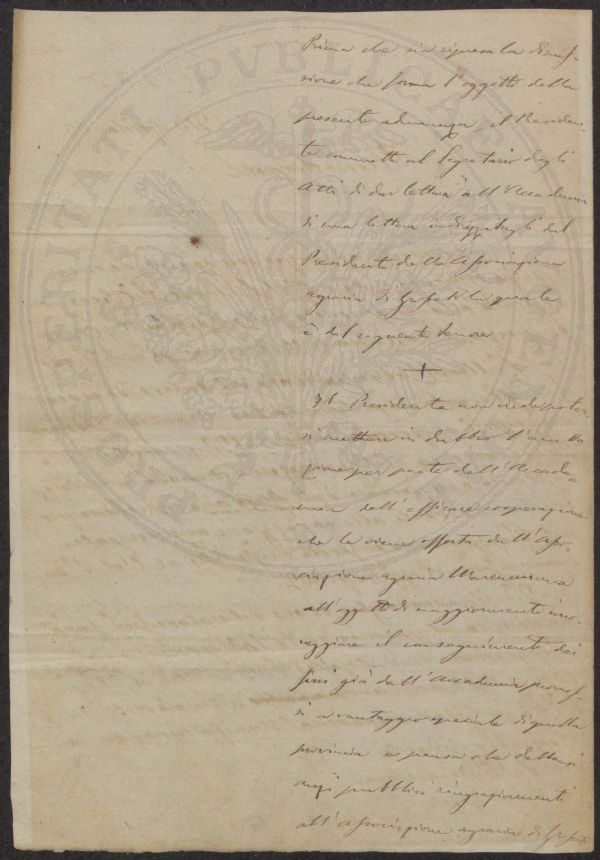 Prima che sia ripresa la discus-
sione che forma l'oggetto della
presente adunanza, il Presiden-
te commette al Segretario degli
Atti di dar lettura all'Accademia
di una lettera indirizzatagli dal
Presidente della Associazione
agraria di Grosseto la quale
è del seguente tenore
+
Il Presidente non
si mettere in dubbio l'accetta-
zione per parte dell'Accade-
mia dell'efficace cooperazione
che le viene offerta dall'Asso-
ciazione agraria Maremmana
all'oggetto di maggiormente inco-
raggiare il conseguimento dei
fini già dall'Accademia promes-
si a vantaggio speciale di quella
provincia e pensa che debbansi
anzi pubblici ringraziamenti
all'Associazione agraria di Grosseto
PROSPERITATI PUBLICAE